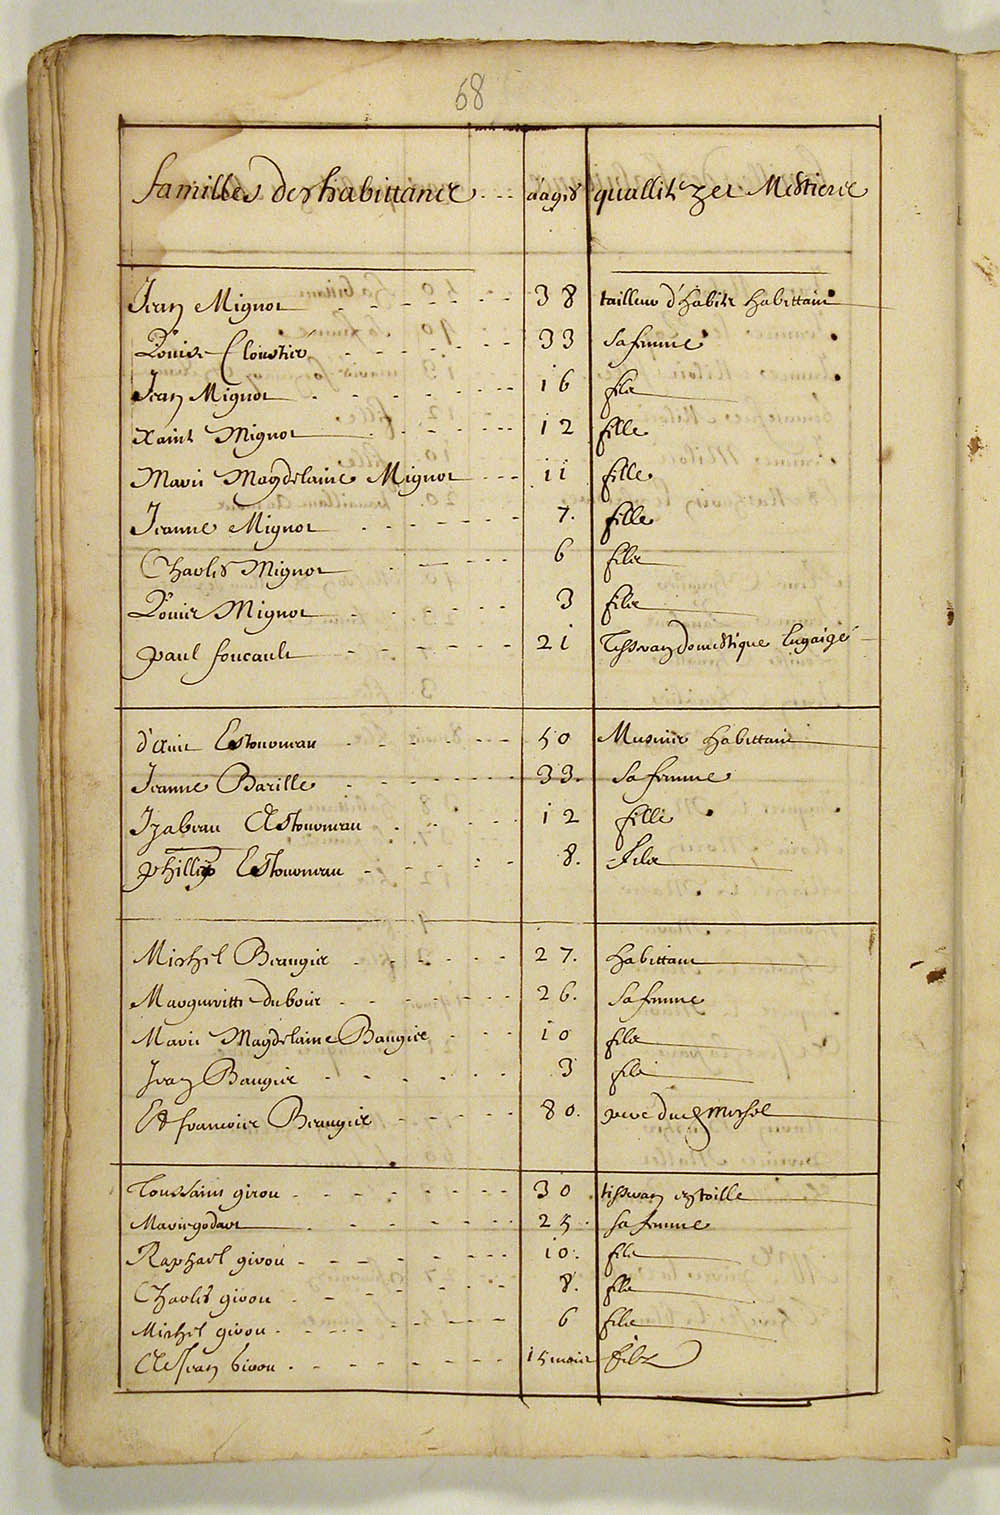 68
familles des habittans aages quallitez et Mestiers
Jean Mignot 38 tailleur d'habitz habittant
Louise Cloustier 33 sa femme
Jean Mignot 16 filz
Xainte Mignot 12 fille
Marie Magdelaine Mignot 11 fille
Jeanne Mignot 7. fille
Charles Mignot 6 filz
Louis Mignot 3 filz
paul foucault 21 Tisseran domestique Engaigé
d'avit Estourneau 50 Musnier habittant
Jeanne Barille 33. sa femme
Izabeau Estourneau 12 fille
phillip Estourneau 8. filz
Michel Baugis 27. habittant
Margueritte dubois 26. sa femme
Marie Magdelaine Baugis 10 filz
Jean Baugis 3 filz
Et francois Baugis 80. pere dud Michel
Toussains girou 30 tisseran en toille
Marie godart 25. sa femme
Raphael girou 10. filz
Charles girou 8. filz
Michel girou 6 filz
Et Jean Girou 15 mois filz